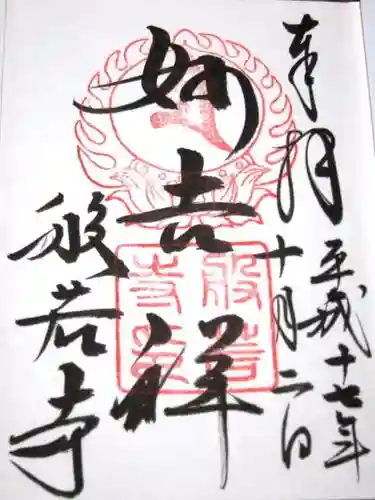 奉拝
平成十七年
十月二日
妙吉祥
般若寺